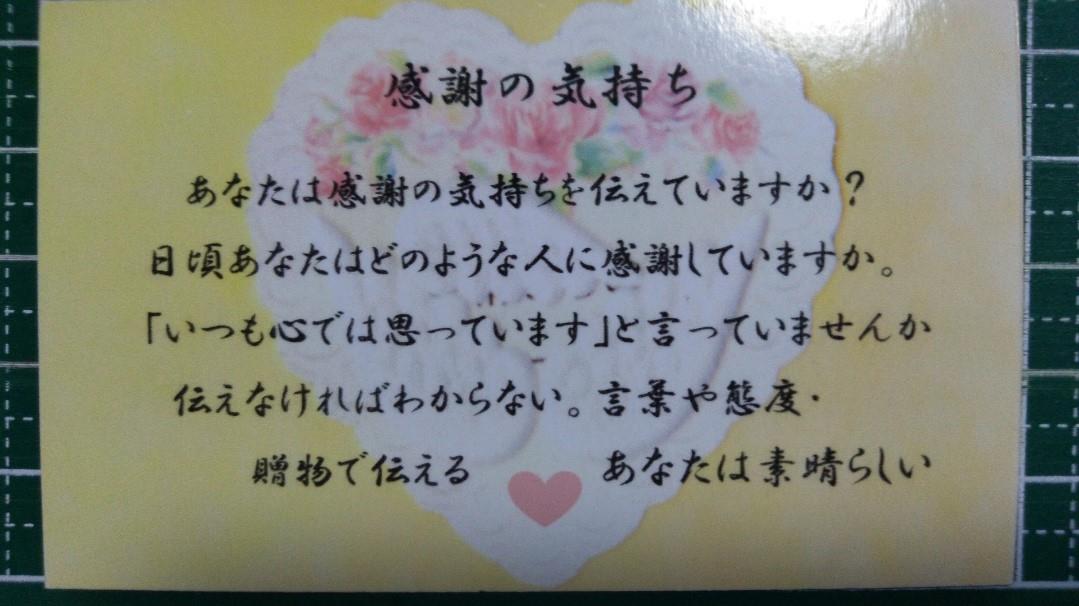 感謝の気持ち
あなたは感謝の気持ちを伝えていますか？
日頃あなたはどのような人に感謝していますか。
「いつも心では思っています」と言っていませんか
伝えなければわからない。言葉や態度・
贈物で伝える あなたは素晴らしい